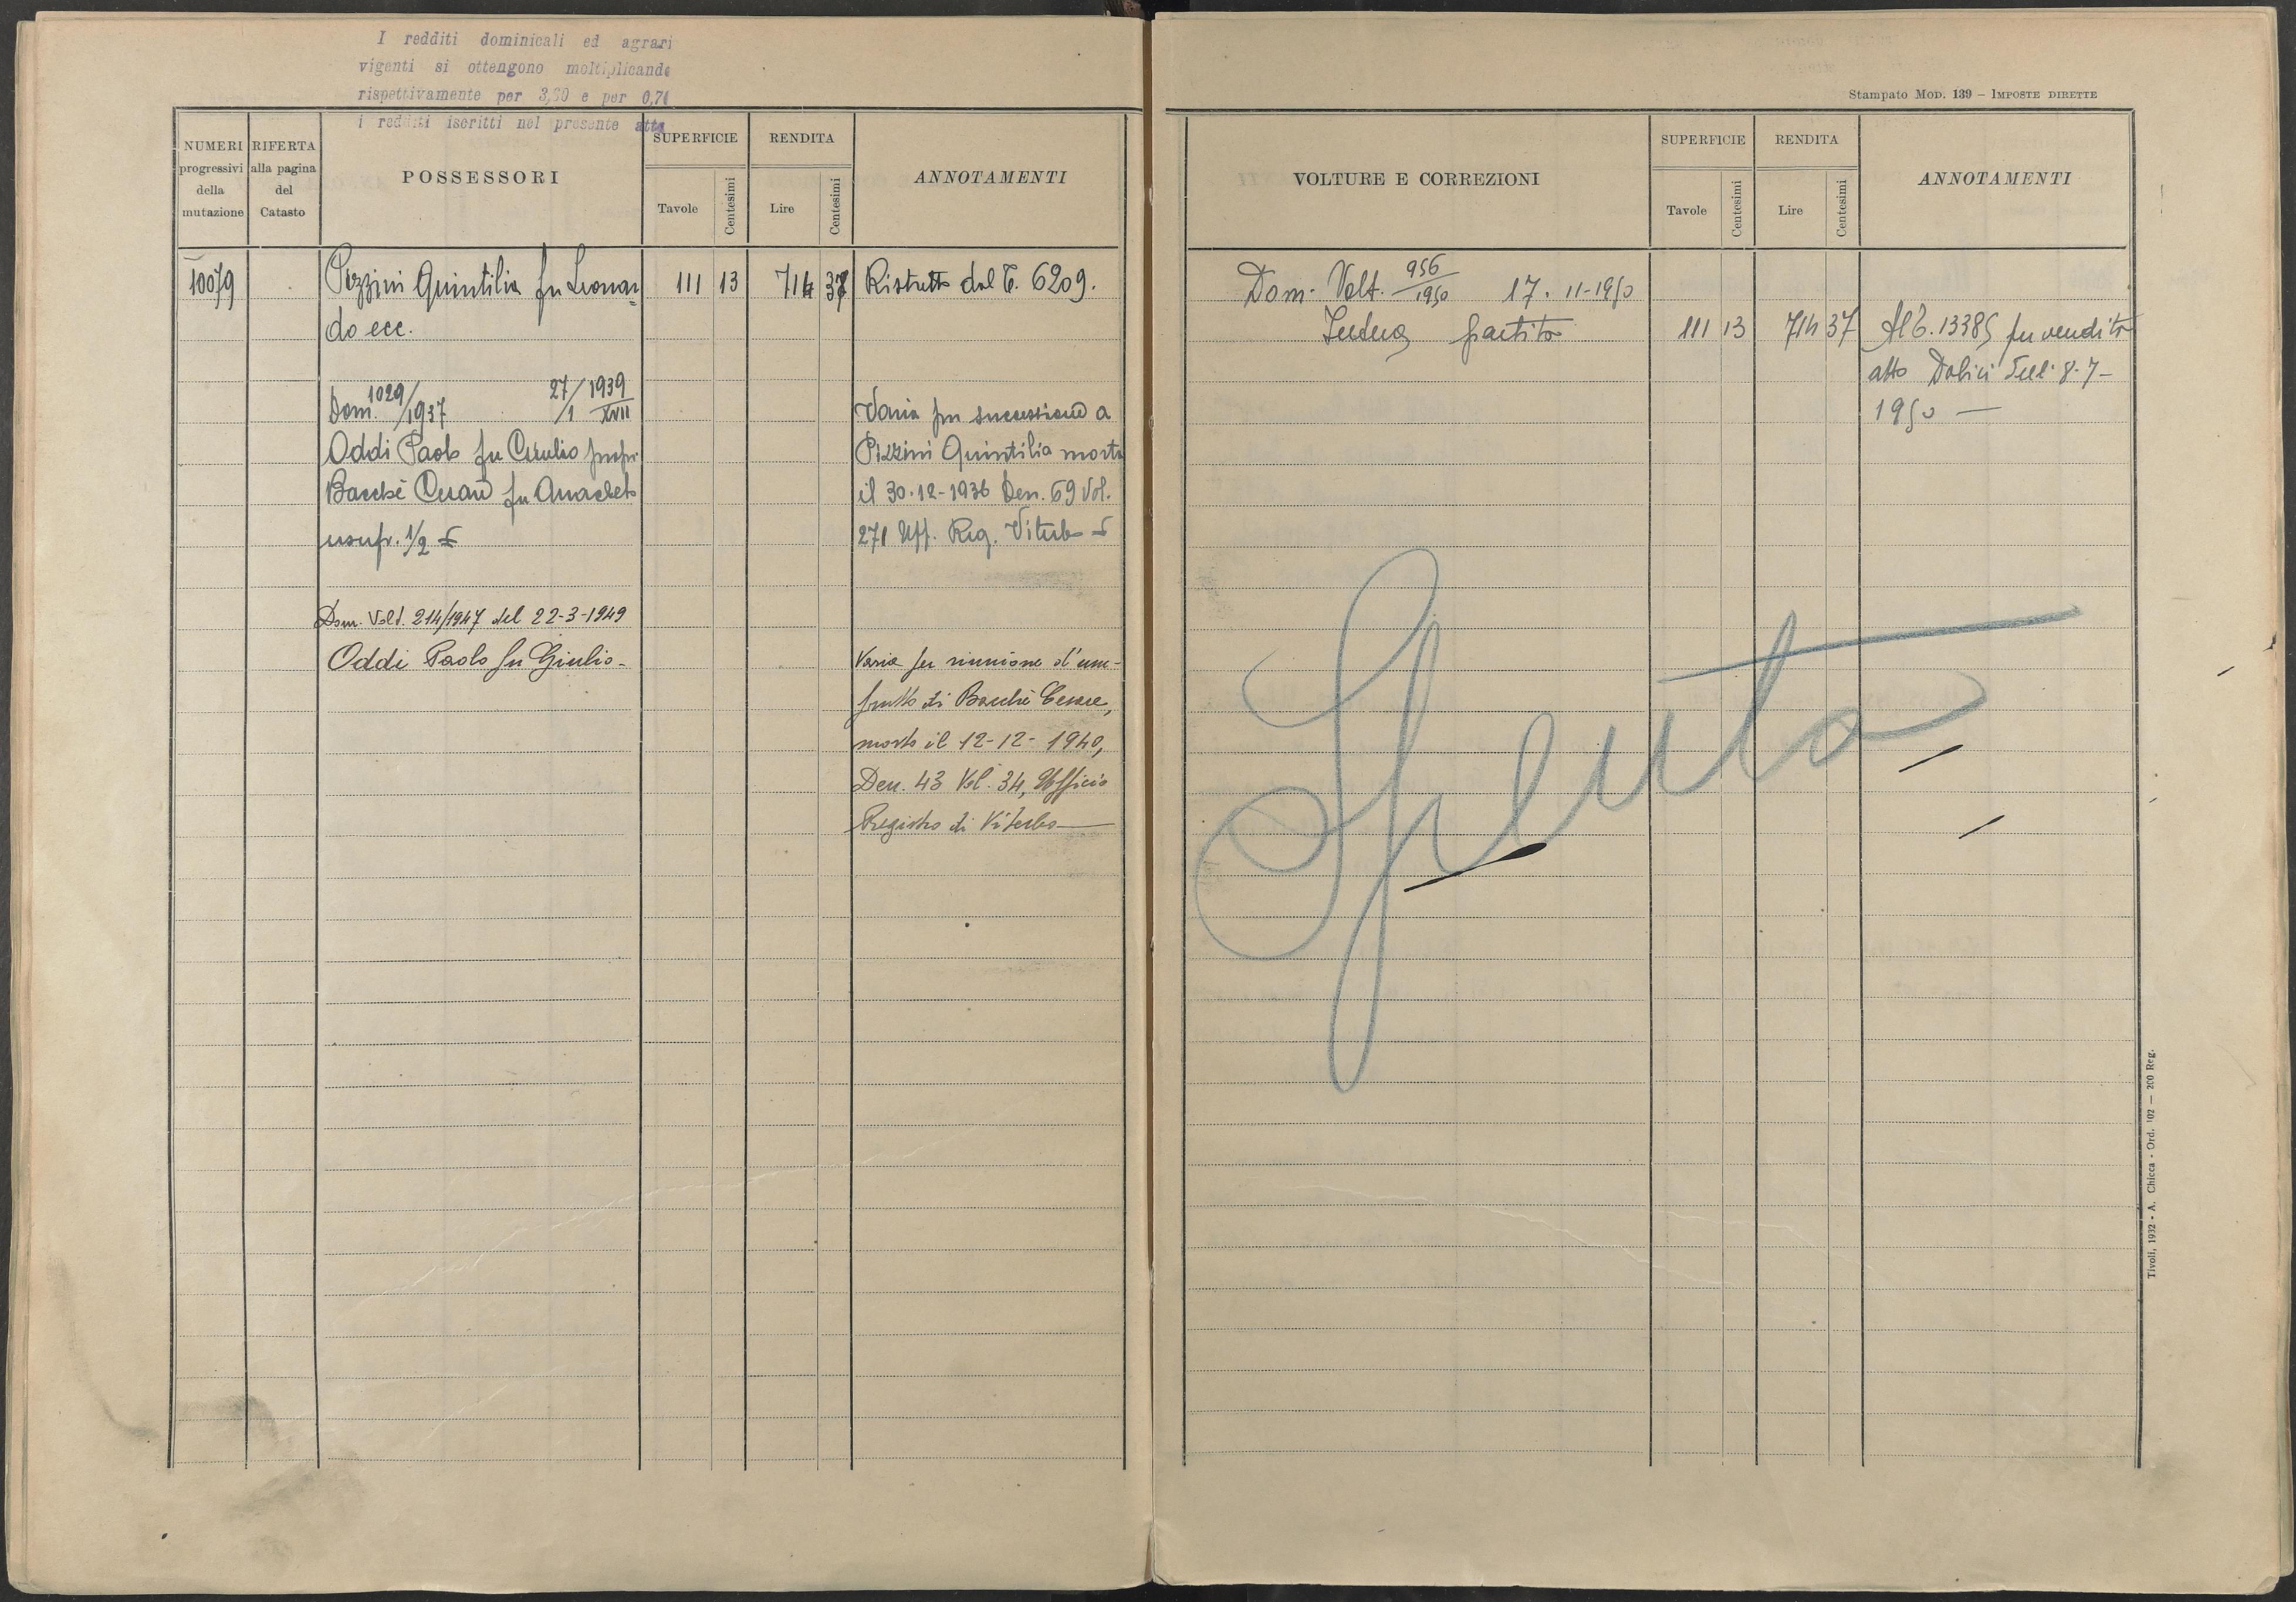 I redditi dominicali ed agrari
vigenti si ottengono moltiplicando
rispettivamente per 3,30 e per 0,71
i redditi iscritti nel presente atto
NUMERI
progressivi
della
mutazione
RIFERTA
alla pagina
del
Catasto
POSSESSORI
SUPERFICIE
Tavole
Centesimi
RENDITA
Lire
Centesimi
ANNOTAMENTI
10079
Pizzini Quintilia fu Leonar
do ecc.
111 13 714 37
Ristretto dal P. 6209.
Dom. 1029/1937 27/1 1939 XVII
Oddi Paolo fu Giulio propr.
Bacchè Cesare fu Anacleto
usufr. 1/2
Varia per successione a
Pizzini Quintilia morta
il 30-12-1936 Den. 69 Vol.
271 Uff. Reg. Viterbo
Dom. Volt. 214/1947 del 22-3-1949
Oddi Paolo fu Giulio-
Varia per riunione d'usu-
frutto di Bacchè Cesare,
morto il 12-12-1940,
Den. 43 Vol. 34, Ufficio
Registro di Viterbo
Stampato MOD. 139 – IMPOSTE DIRETTE
VOLTURE E CORREZIONI
SUPERFICIE
Tavole
Centesimi
RENDITA
Lire
Centesimi
ANNOTAMENTI
Dom. Volt. 956/1950 17-11-1950
partita
111 13 714 37
Al P. 13385 per vendita
atto 8-7-
1950 —
Spenta
Tivoli, 1932 - A. Chicca - Ord. 102 — 200 Reg.